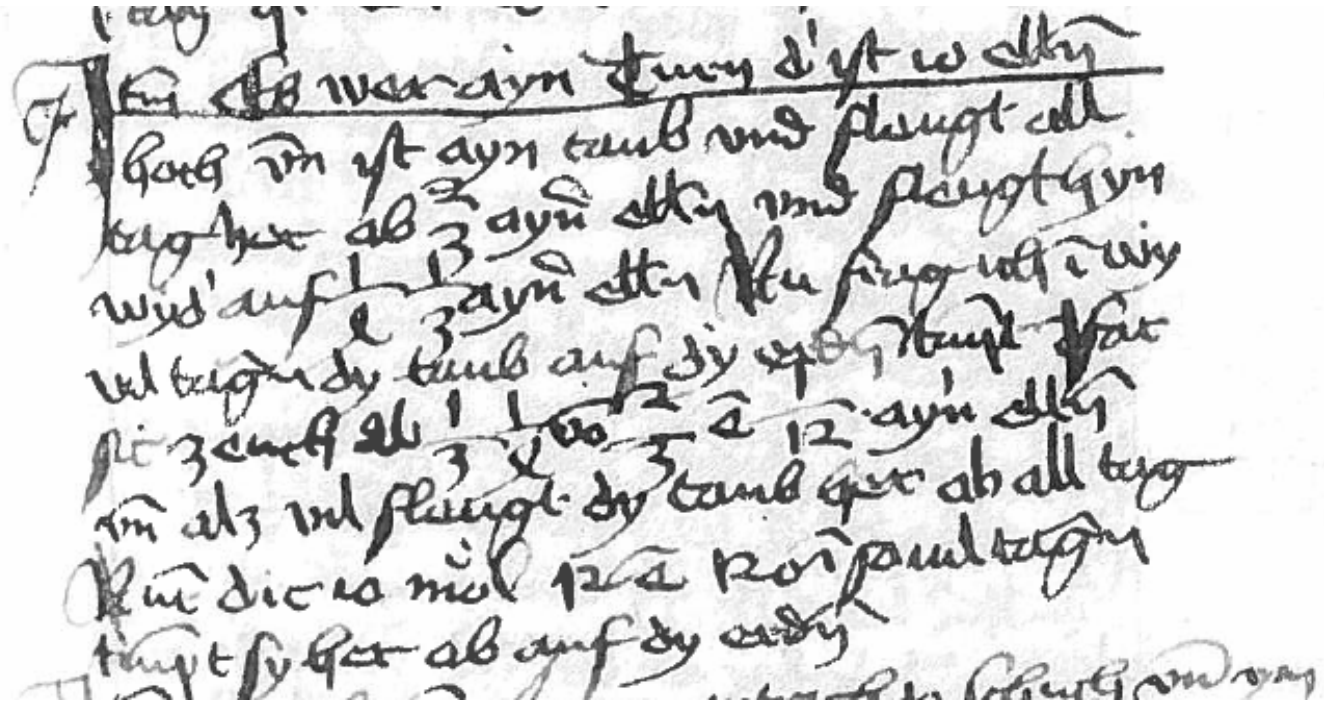 Itm Es wer ayn Turn d' ist 10 elln̄
hoch vn̄ ist ayn taub vnd fleugt all
tag her ab 2/3 ayn̄ elln vnd fleugt hyn
wyd' auf 1/4 1/3 ayn̄ elln Nu frag ich ī wy
vil tagn̄ dy taub auf dy erdn kumpt fac
sic zeuch ab 1/3 1/4 vō 2/3 ē 1/12 ayn̄ elln̄
vn̄ alz vil fleugt dy taub her ab all tag
Nu dic 10 mol 12 ē 120 ī souil tagn̄
kumpt sy her ab auf dy erdn̄
schuch vn̄